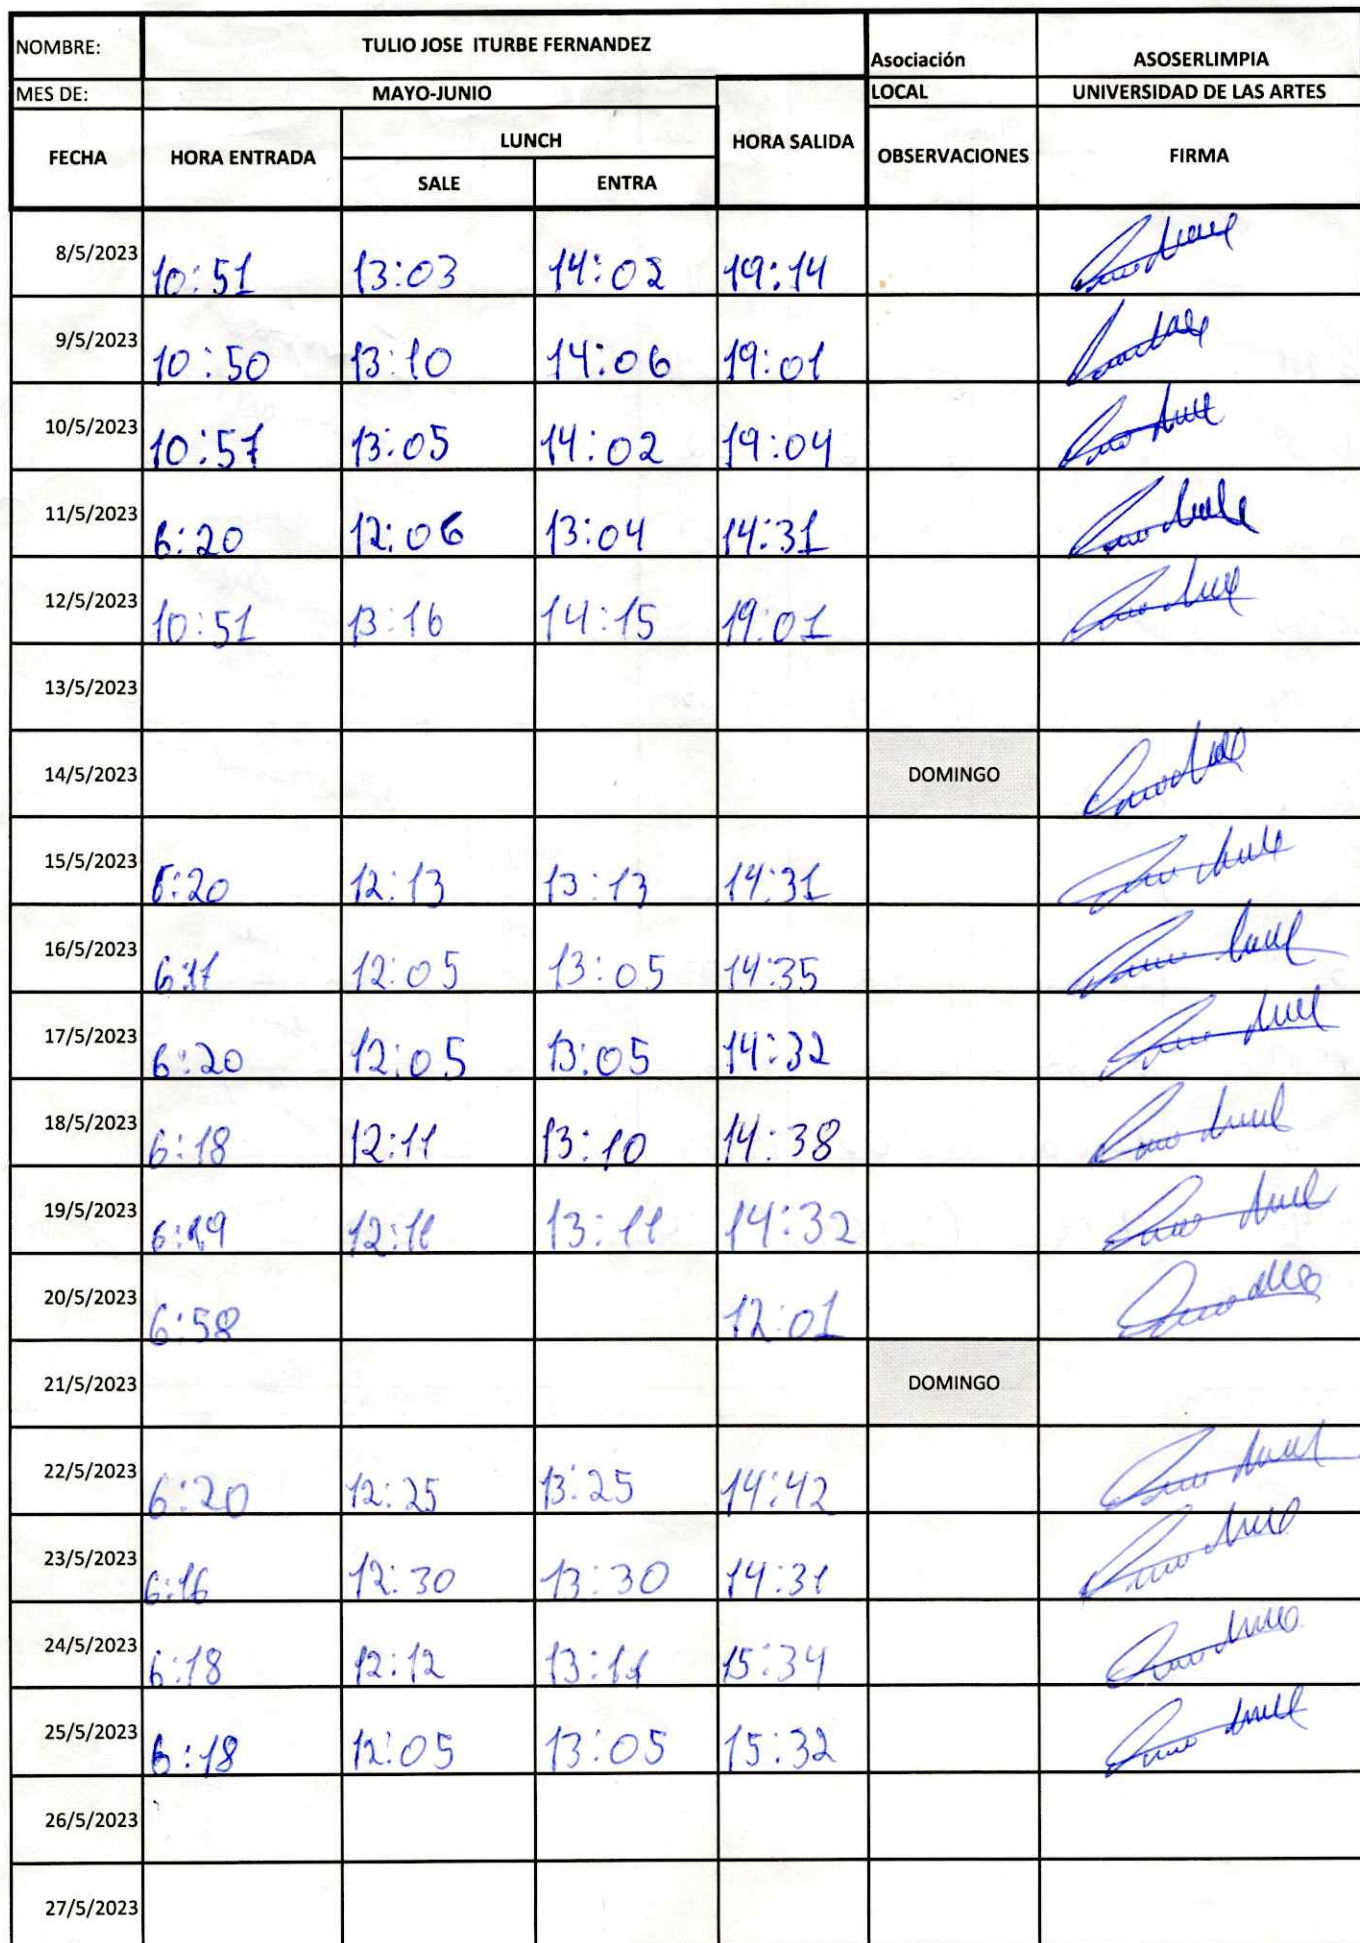 NOMBRE: TULIO JOSE ITURBE FERNANDEZ Asociación ASOSERLIMPIA
MES DE: MAYO-JUNIO LOCAL UNIVERSIDAD DE LAS ARTES
FECHA HORA ENTRADA LUNCH HORA SALIDA OBSERVACIONES FIRMA
SALE ENTRA
8/5/2023 10:51 13:03 14:02 19:14
9/5/2023 10:50 13:10 14:06 19:01
10/5/2023 10:57 13:05 14:02 19:04
11/5/2023 6:20 12:06 13:04 14:31
12/5/2023 10:51 13:16 14:15 19:01
13/5/2023
14/5/2023 DOMINGO
15/5/2023 6:20 12:13 13:13 14:31
16/5/2023 12:05 13:05 14:35
17/5/2023 6:20 12:05 13:05 14:32
18/5/2023 6:18 12:11 13:10 14:38
19/5/2023 6:19 12:11 13:11 14:32
20/5/2023 6:58 12:01
21/5/2023 DOMINGO
22/5/2023 6:20 12:25 13:25 14:42
23/5/2023 6:16 12:30 13:30 14:31
24/5/2023 6:18 12:12 13:11 15:34
25/5/2023 6:18 12:05 13:05 15:32
26/5/2023
27/5/2023